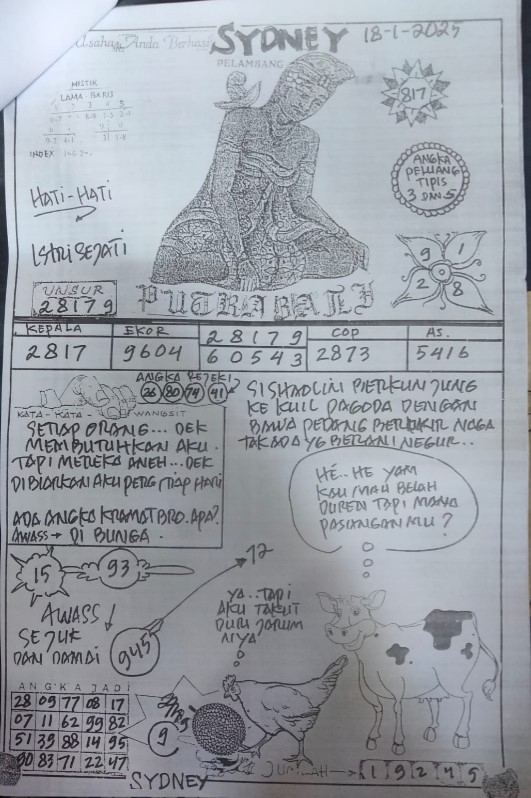 Usaha Anda Berhasi
SYDNEY
18-1-2025
PELAMBANG
MISTIK
LAMA BARIS
INDEX
817
HATI-HATI
ANGKA
PELUANG
TIPIS
3 DAN 5
ISTRI SEJATI
9 1
2 8
UNSUR
28179
PUTRA BALI
KEPALA EKOR 28179 COP AS.
2817 9604 60543 2873 5416
ANGKA REJEKI
26 80 74 41
KATA-KATA WANGSIT
SETIAP ORANG... DEK
MEMBUTUHKAN AKU.
TAPI MEREKA ANEH...DEK
DIBIARKAN AKU PERGI TIAP HARI
ADA ANGKA KRAMAT BRO. APA?
AWASS → DI BUNGA.
SI SHAOLIN BERKUNJUNG
KE KUIL PAGODA DENGAN
BAWA PEDANG BERUKIR NAGA
TAK ADA YG BERANI NEGUR..
HÉ..HE YAM
KAU MAU BELAH
DUREN TAPI MANA
PASANGAN MU?
15
93
12
AWASS
SEJUK
DAN DAMAI
9415
YA..TAPI
AKU TAKUT
DURI JARUM
NYA
ANGKA JADI
28 09 77 08 17
07 11 62 99 82
51 39 88 14 95
90 83 71 22 47
9
SYDNEY
JUMLAH → 1 9 2 4 5